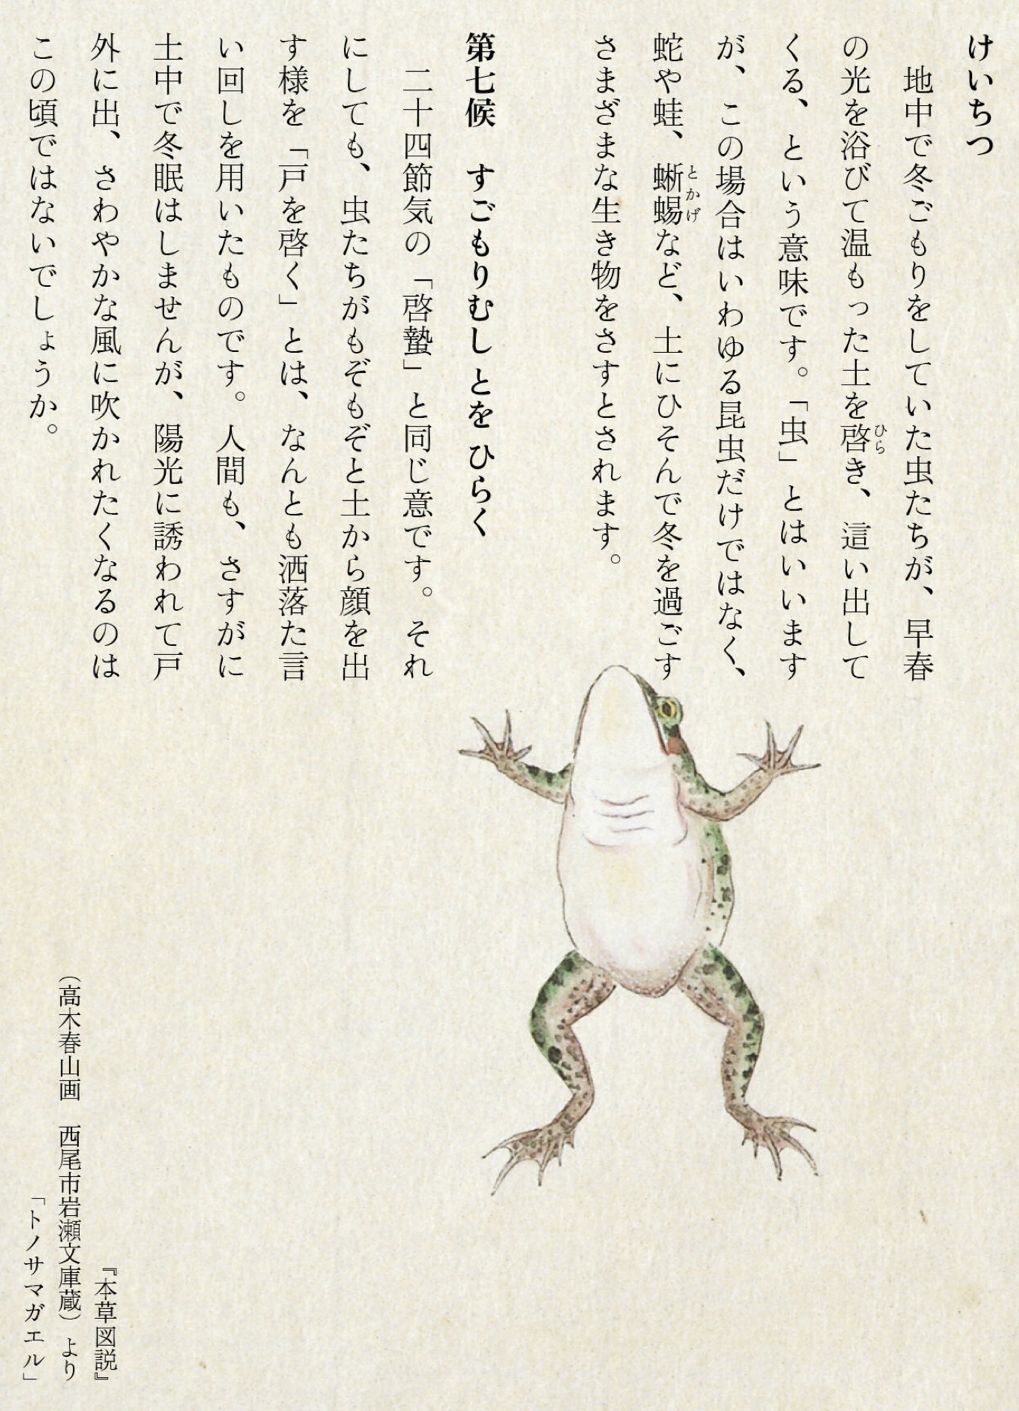 けいちつ
地中で冬ごもりをしていた虫たちが、早春
の光を浴びて温もった土を啓き、這い出して
ひら
くる、という意味です。「虫」とはいいます
が、この場合はいわゆる昆虫だけではなく、
蛇や蛙、蜥蜴など、土にひそんで冬を過ごす
とかげ
さまざまな生き物をさすとされます。
第七候　すごもりむし とを ひらく
二十四節気の「啓蟄」と同じ意です。それ
にしても、虫たちがもぞもぞと土から顔を出
す様を「戸を啓く」とは、なんとも洒落た言
い回しを用いたものです。人間も、さすがに
土中で冬眠はしませんが、陽光に誘われて戸
外に出、さわやかな風に吹かれたくなるのは
この頃ではないでしょうか。
『本草図説』
（高木春山画　西尾市岩瀬文庫蔵）より
「トノサマガエル」